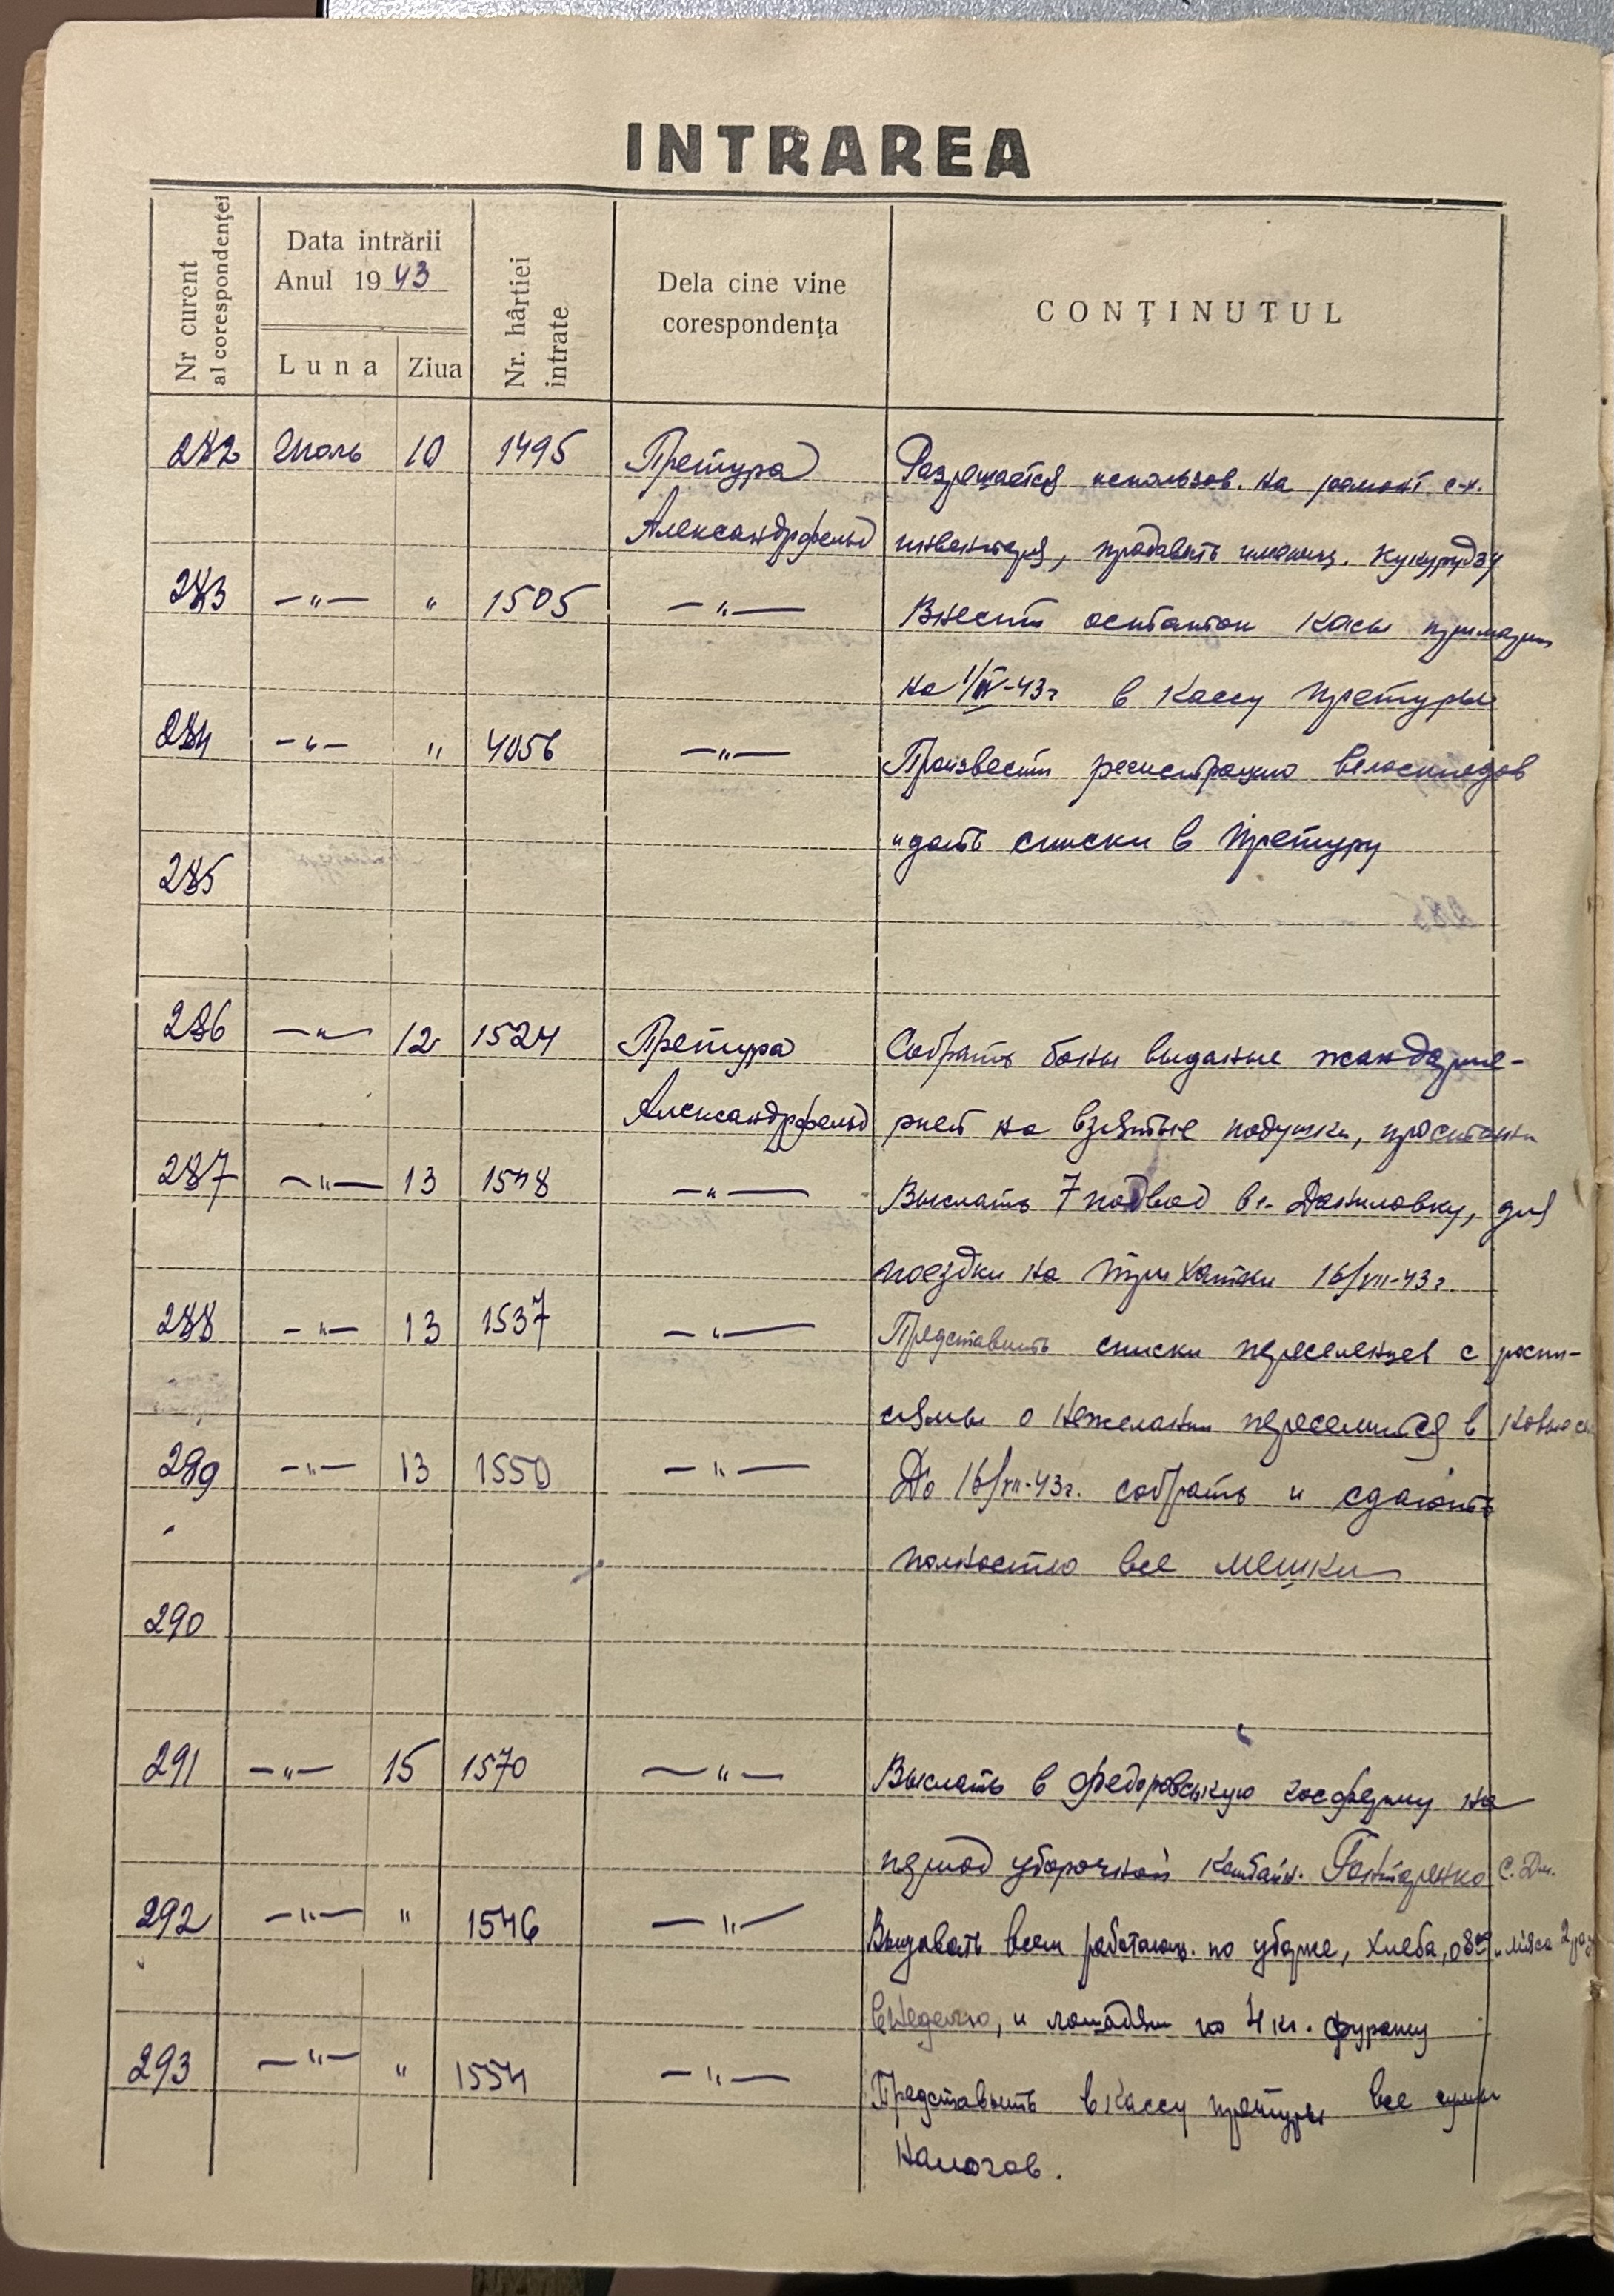 INTRAREA
Nr curent al corespondenței
Data intrării
Anul 1943
Luna
Ziua
Nr. hârtiei intrate
Dela cine vine corespondența
CONȚINUTUL
282 Июль 10 1495 Претура Разрешается использов. на ремонт с-х.
Александрфельд инвентаря, продавать имеющ. кукурудзу
283 —"— " 1505 —"— Внести остаток касы
на 1/IV-43г в кассу претуры
284 —"— " 4056 —"— Произвести регистрацию велосипедов
и дать списки в Претуру
285
286 —"— 12 1524 Претура Собрать боны выданые
Александрфельд на взятые подушки, простыни
287 —"— 13 1548 —"— Выслать 7 подвод в с. Даниловку, для
поездки на Трихатки 16/VII-43г.
288 —"— 13 1537 —"— Представить списки переселенцев с роспи-
сямы о нежелании переселится в новые
289 —"— 13 1550 —"— До 16/VII-43г. собрать и
полностю все мешки
290
291 —"— 15 1570 —"— Выслать в Федоровськую госферму на
период уборочной комбайн. Гонтаренко С. Дм.
292 —"— " 1546 —"— Выдавать всем работающ. по уборке, хлеба, и мяса 2 раз
в неделю, и лошадям по 4 кг. фуражу
293 —"— " 1554 —"— Представить в кассу претуры все сумы
налогов.